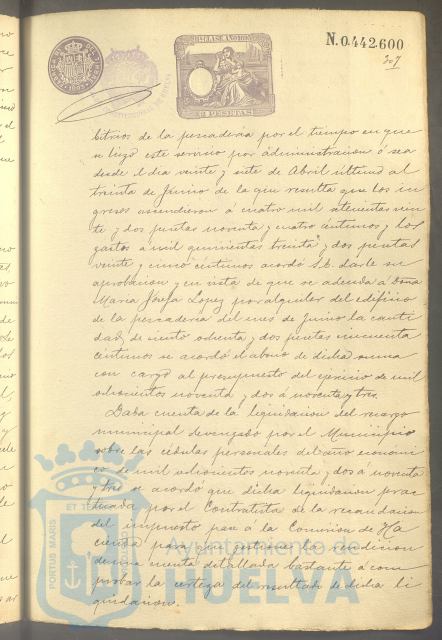 N.0.442.600
307
10 PESETAS
bitrios de la pescaderia por el tiempo en que
se hizo este servicio por administracion ó sea
desde el dia veinte y siete de Abril ultimo al
treinta de Junio de la que resulta que los in
gresos ascendieron á cuatro mil setecientas vein
te y dos pesetas noventa y cuatro centimos y los
gastos a mil quinientas treinta y dos pesetas
veinte y cinco centimos acordó S.E. darle su
aprobacion y en vista de que se adeuda á Doña
Maria Josefa Lopez por alquiler del edificio
de la pescaderia del mes de Junio la canti
dad de ciento ochenta y dos pesetas cincuenta
centimos se acordó el abono de dicha suma
con cargo al presupuesto del ejercicio de mil
ochocientos noventa y dos á noventa y tres.
Daba cuenta de la liquidacion del recargo
municipal devengado por el Municipio
sobre las cédulas personales del año economi
co de mil ochocientos noventa y dos á noventa
y tres se acordó que dicha liquidacion prac
ticada por el Contratista de la recaudacion
del impuesto pase á la Comision de Ha
cienda para que gestione la rendicion
de una cuenta detallada bastante á com
probar la certeza del resultado de dicha li
quidacion.
Ayuntamiento de
HUELVA
PORTUS MARIS
ET TERRÆ